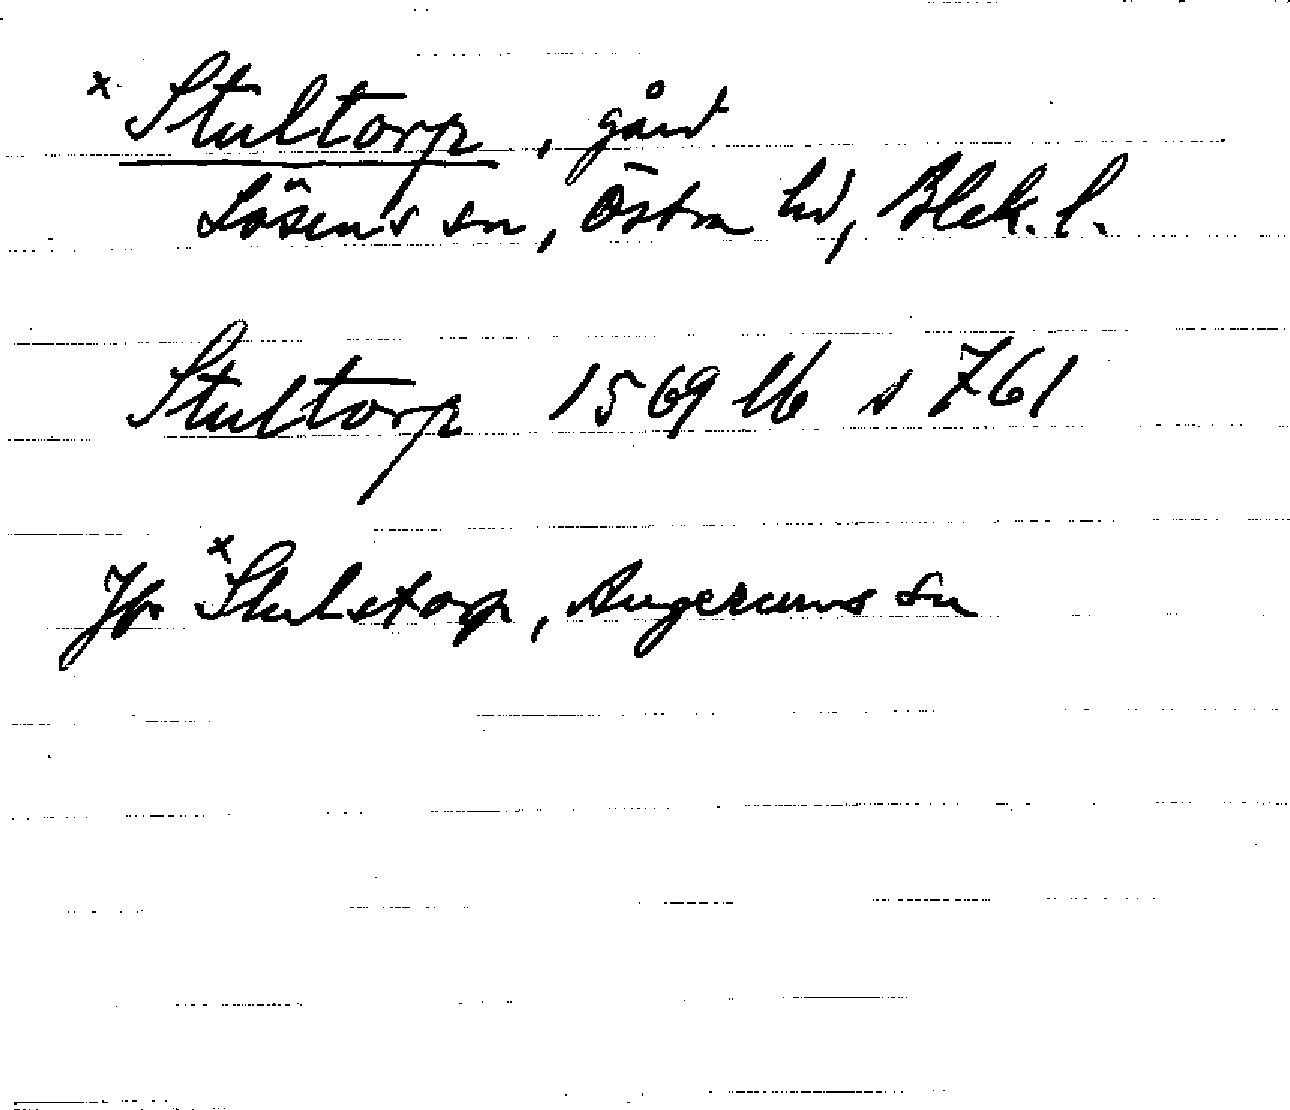 x Stultorp, gård
Lösens sn, Östra hd, Blek. l.
Stultorp 1569 lb s 761
Jfr x Stulstorp, Augerums sn